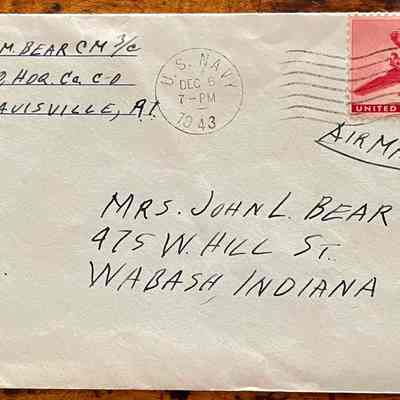 M. BEAR CM 3/c
HDQ. Ca. C-D
DAVISVILLE, R.I.
U.S. NAVY
DEC 6
7-PM
1943
UNITED
AIR MA
MRS. JOHN L. BEAR
475 W. HILL ST.
WABASH, INDIANA